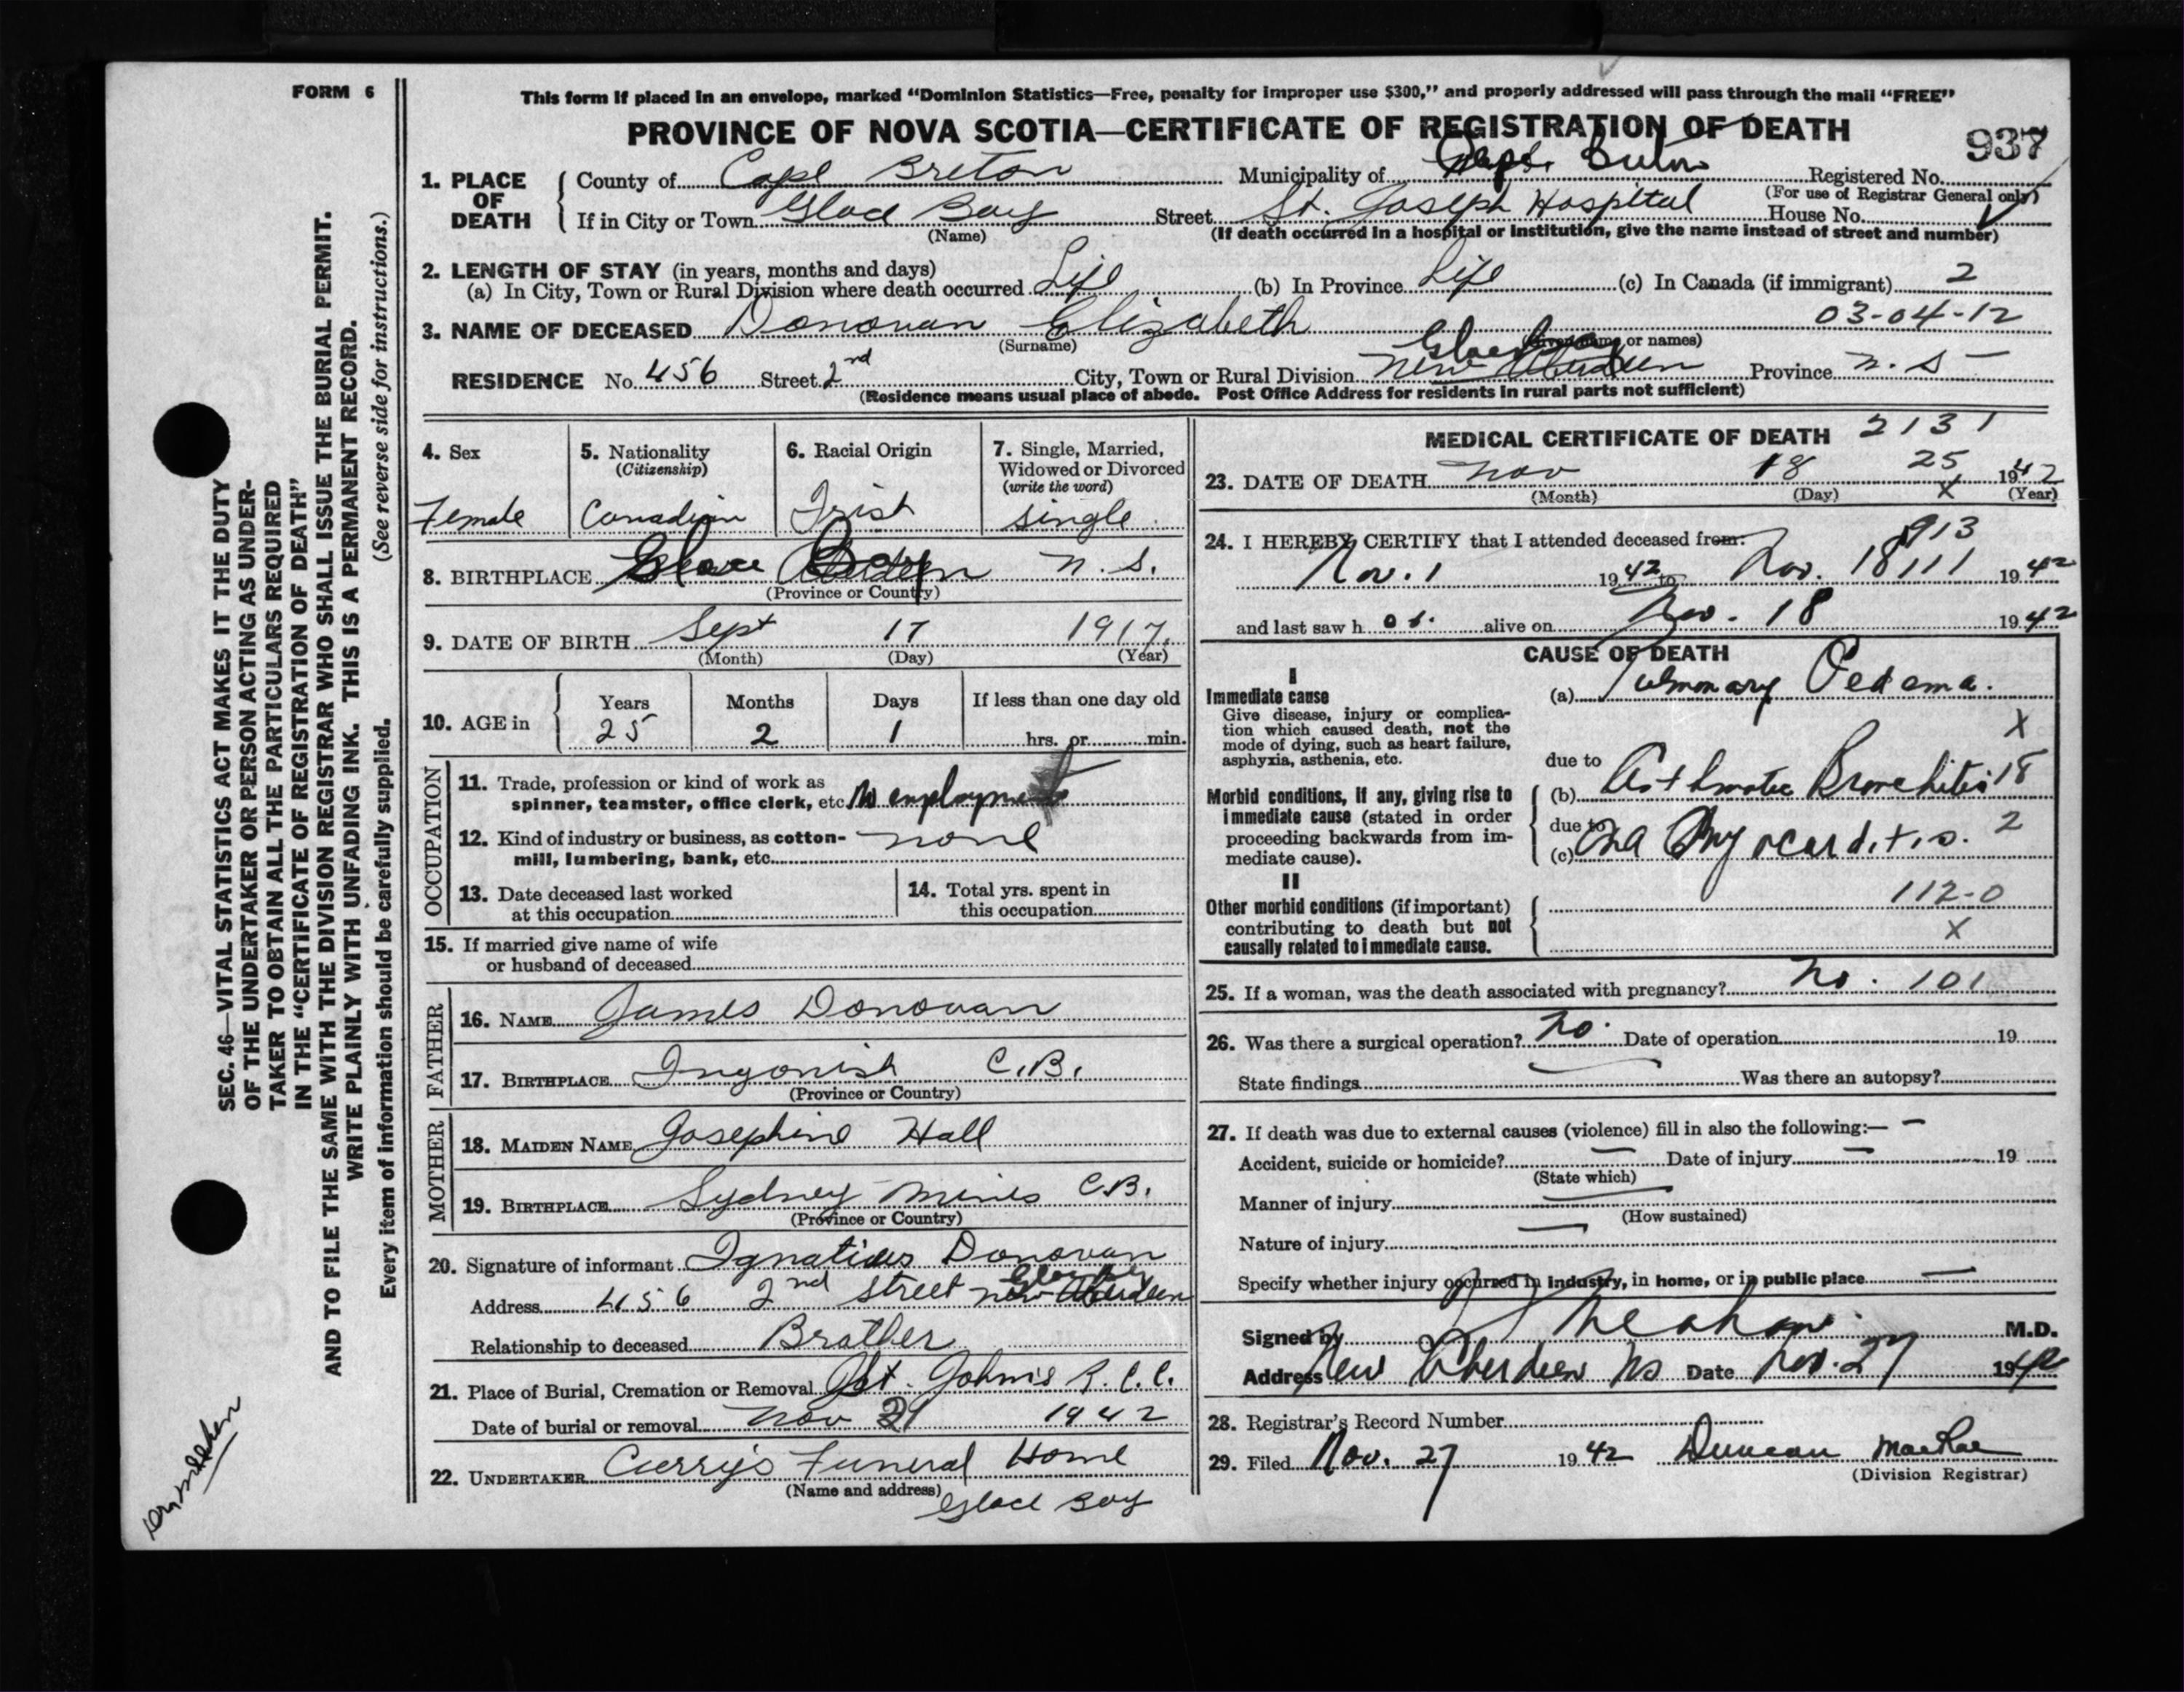 FORM 6
This form if placed in an envelope, marked "Dominion Statistics—Free, penalty for improper use $300," and properly addressed will pass through the mail "FREE"
PROVINCE OF NOVA SCOTIA—CERTIFICATE OF REGISTRATION OF DEATH
937
1. PLACE OF DEATH
County of Cape Breton Municipality of Cape Breton Registered No.
(For use of Registrar General only)
If in City or Town Glace Bay Street St. Joseph Hospital House No.
(Name) (If death occurred in a hospital or institution, give the name instead of street and number)
2. LENGTH OF STAY (in years, months and days)
(a) In City, Town or Rural Division where death occurred Life (b) In Province Life (c) In Canada (if immigrant) 2
3. NAME OF DECEASED Donovan Elizabeth 03-04-12
(Surname) (Given name or names)
Glace Bay
RESIDENCE No. 456 Street 2nd City, Town or Rural Division New Aberdeen Province N.S
(Residence means usual place of abode. Post Office Address for residents in rural parts not sufficient)
4. Sex
Female
5. Nationality
(Citizenship)
Canadian
6. Racial Origin
Irish
7. Single, Married, Widowed or Divorced
(write the word)
single
8. BIRTHPLACE Glace Bay Aberdeen N.S.
(Province or Country)
9. DATE OF BIRTH Sept 17 1917
(Month) (Day) (Year)
10. AGE in
Years Months Days If less than one day old
25 2 1 hrs. or min.
OCCUPATION
11. Trade, profession or kind of work as
spinner, teamster, office clerk, etc. No employment
12. Kind of industry or business, as cotton-
mill, lumbering, bank, etc. none
13. Date deceased last worked
at this occupation
14. Total yrs. spent in
this occupation
15. If married give name of wife
or husband of deceased
FATHER
16. NAME James Donovan
17. BIRTHPLACE Ingonish C.B.
(Province or Country)
MOTHER
18. MAIDEN NAME Josephine Hall
19. BIRTHPLACE Sydney Mines C.B.
(Province or Country)
20. Signature of informant Ignatius Donovan
Glace Bay
Address 456 2nd Street New Aberdeen
Relationship to deceased Brother
21. Place of Burial, Cremation or Removal St. John's R.C.C.
Date of burial or removal Nov 21 1942
22. UNDERTAKER Curry's Funeral Home
(Name and address) Glace Bay
MEDICAL CERTIFICATE OF DEATH 2131
25
23. DATE OF DEATH Nov 18 X 1942
(Month) (Day) (Year)
913
24. I HEREBY CERTIFY that I attended deceased from:
Nov. 1 1942 to Nov. 18 111 1942
and last saw h er alive on Nov. 18 1942
CAUSE OF DEATH
I
Immediate cause
Give disease, injury or complica-
tion which caused death, not the
mode of dying, such as heart failure,
asphyxia, asthenia, etc.
(a) Pulmonary Oedema.
X
due to
Morbid conditions, if any, giving rise to
immediate cause (stated in order
proceeding backwards from im-
mediate cause).
(b) Asthmatic Bronchitis 18
due to
(c) Myocarditis. 2
II
Other morbid conditions (if important)
contributing to death but not
causally related to immediate cause.
112-0
X
25. If a woman, was the death associated with pregnancy? No. 101
26. Was there a surgical operation? No. Date of operation 19
State findings Was there an autopsy?
27. If death was due to external causes (violence) fill in also the following:— —
Accident, suicide or homicide? — Date of injury — 19
(State which)
Manner of injury
(How sustained)
Nature of injury
Specify whether injury occurred in industry, in home, or in public place —
Signed by M.D.
Address New Aberdeen NS Date Nov. 27 1942
28. Registrar's Record Number
29. Filed Nov. 27 1942 Duncan MacRae
(Division Registrar)
SEC. 46—VITAL STATISTICS ACT MAKES IT THE DUTY
OF THE UNDERTAKER OR PERSON ACTING AS UNDER-
TAKER TO OBTAIN ALL THE PARTICULARS REQUIRED
IN THE "CERTIFICATE OF REGISTRATION OF DEATH"
AND TO FILE THE SAME WITH THE DIVISION REGISTRAR WHO SHALL ISSUE THE BURIAL PERMIT.
WRITE PLAINLY WITH UNFADING INK. THIS IS A PERMANENT RECORD.
Every item of information should be carefully supplied. (See reverse side for instructions.)